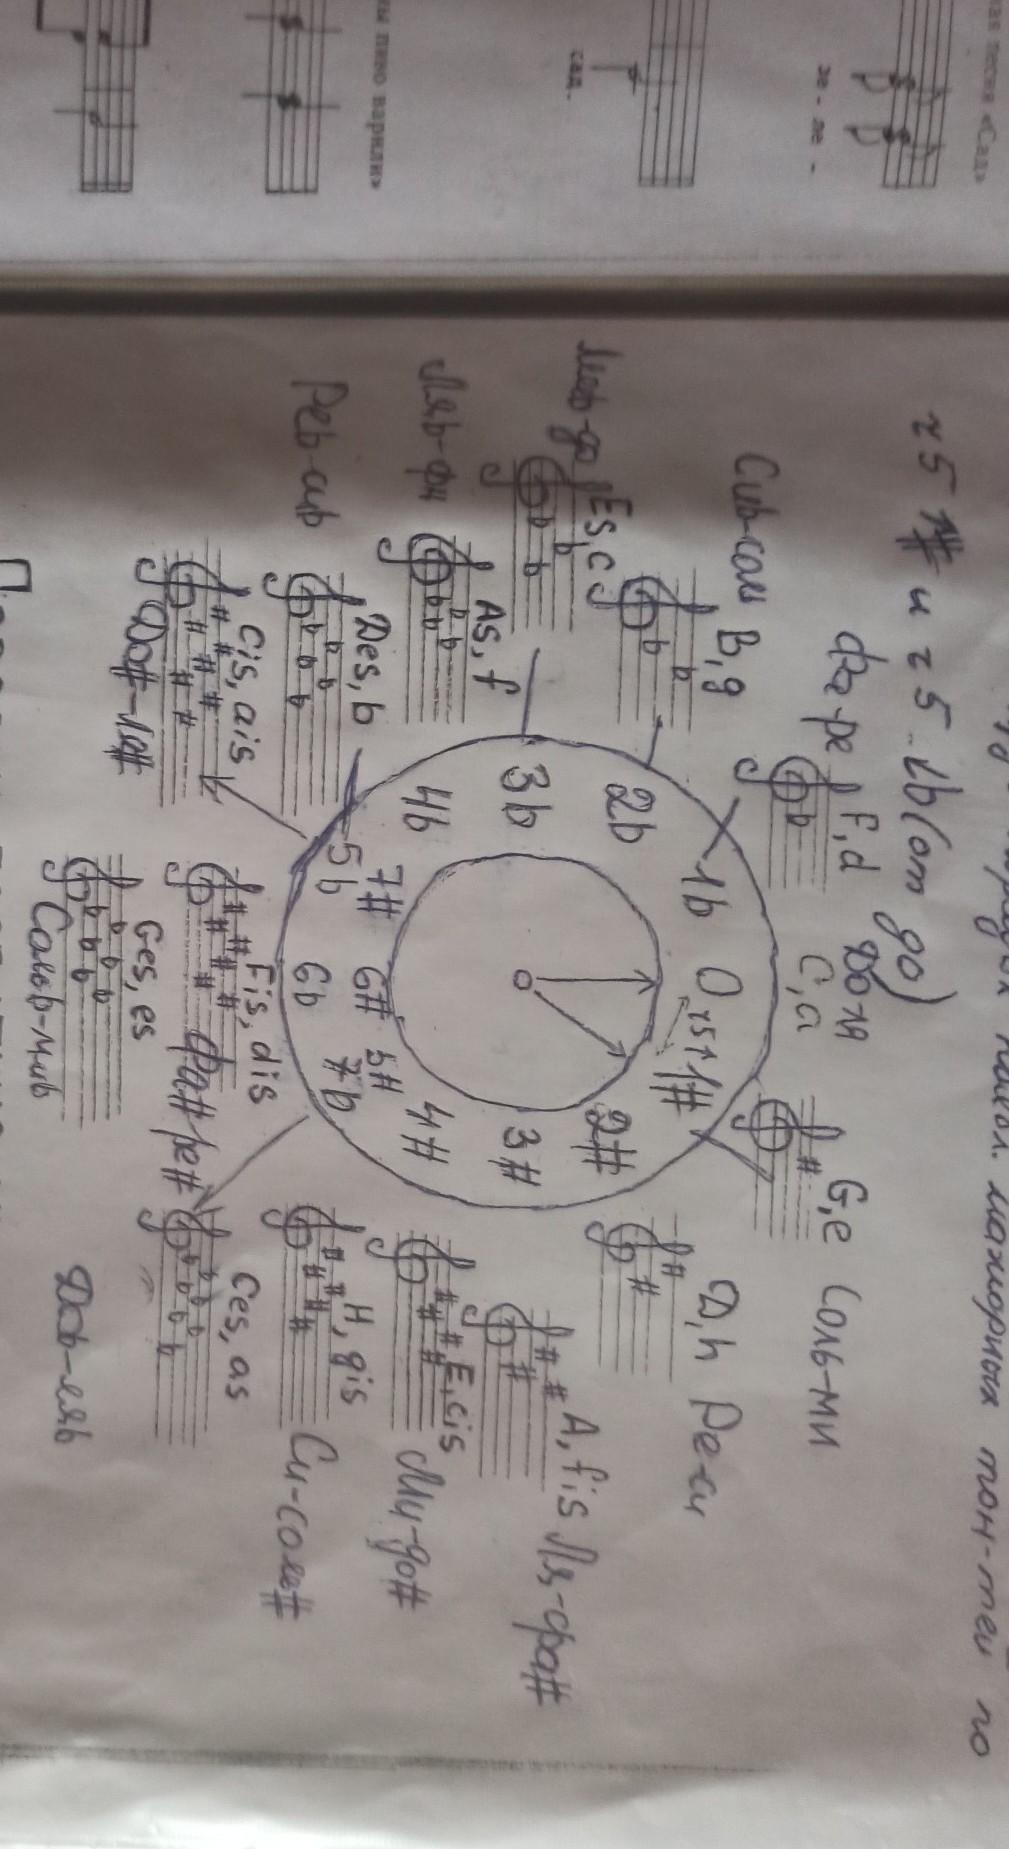 ная песня «Сад»
зе - ле -
сад.
ны пиво варили»
мажорных тон-тей по
ч5 # и ч5 ↓b (от до)
До ля
C, a
Фа-ре
F, d
G, e Соль-ми
Сиb-соль B, g
D, h Ре-си
Миb-до Es, c
A, fis Ля-фа#
Ляb-фа
As, f
E, cis
Ми-до#
Реb-сиb
Des, b
H, gis
Си-соль#
Cis, ais
До#-ля#
Fis, dis
Фа# ре#
Ges, es
Сольb-миb
Ces, as
Доb-ляb
0
ч5↑
1b
1#
2b
2#
3b
3#
4b
4#
5b
7#
6#
6b
5#
7b